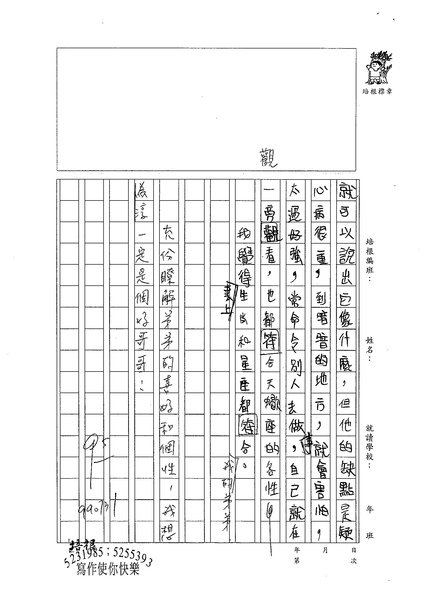 培根標章
觀
培根編班：　姓名：　就讀學校：　年　班
年　月　日
第　次
就可以說出它像什麼，但他的缺點是疑
心病很重，到暗暗的地方，就會害怕，
太過好強，常命令別人去做，自己就在
一旁觀看，也都符合天蠍座的各性。
我覺得生肖和星座都符合。
我的弟弟
充份瞭解弟弟的喜好和個性，我想
為淳一定是個好哥哥！
95
990731
培根
5231985；5255393
寫作使你快樂